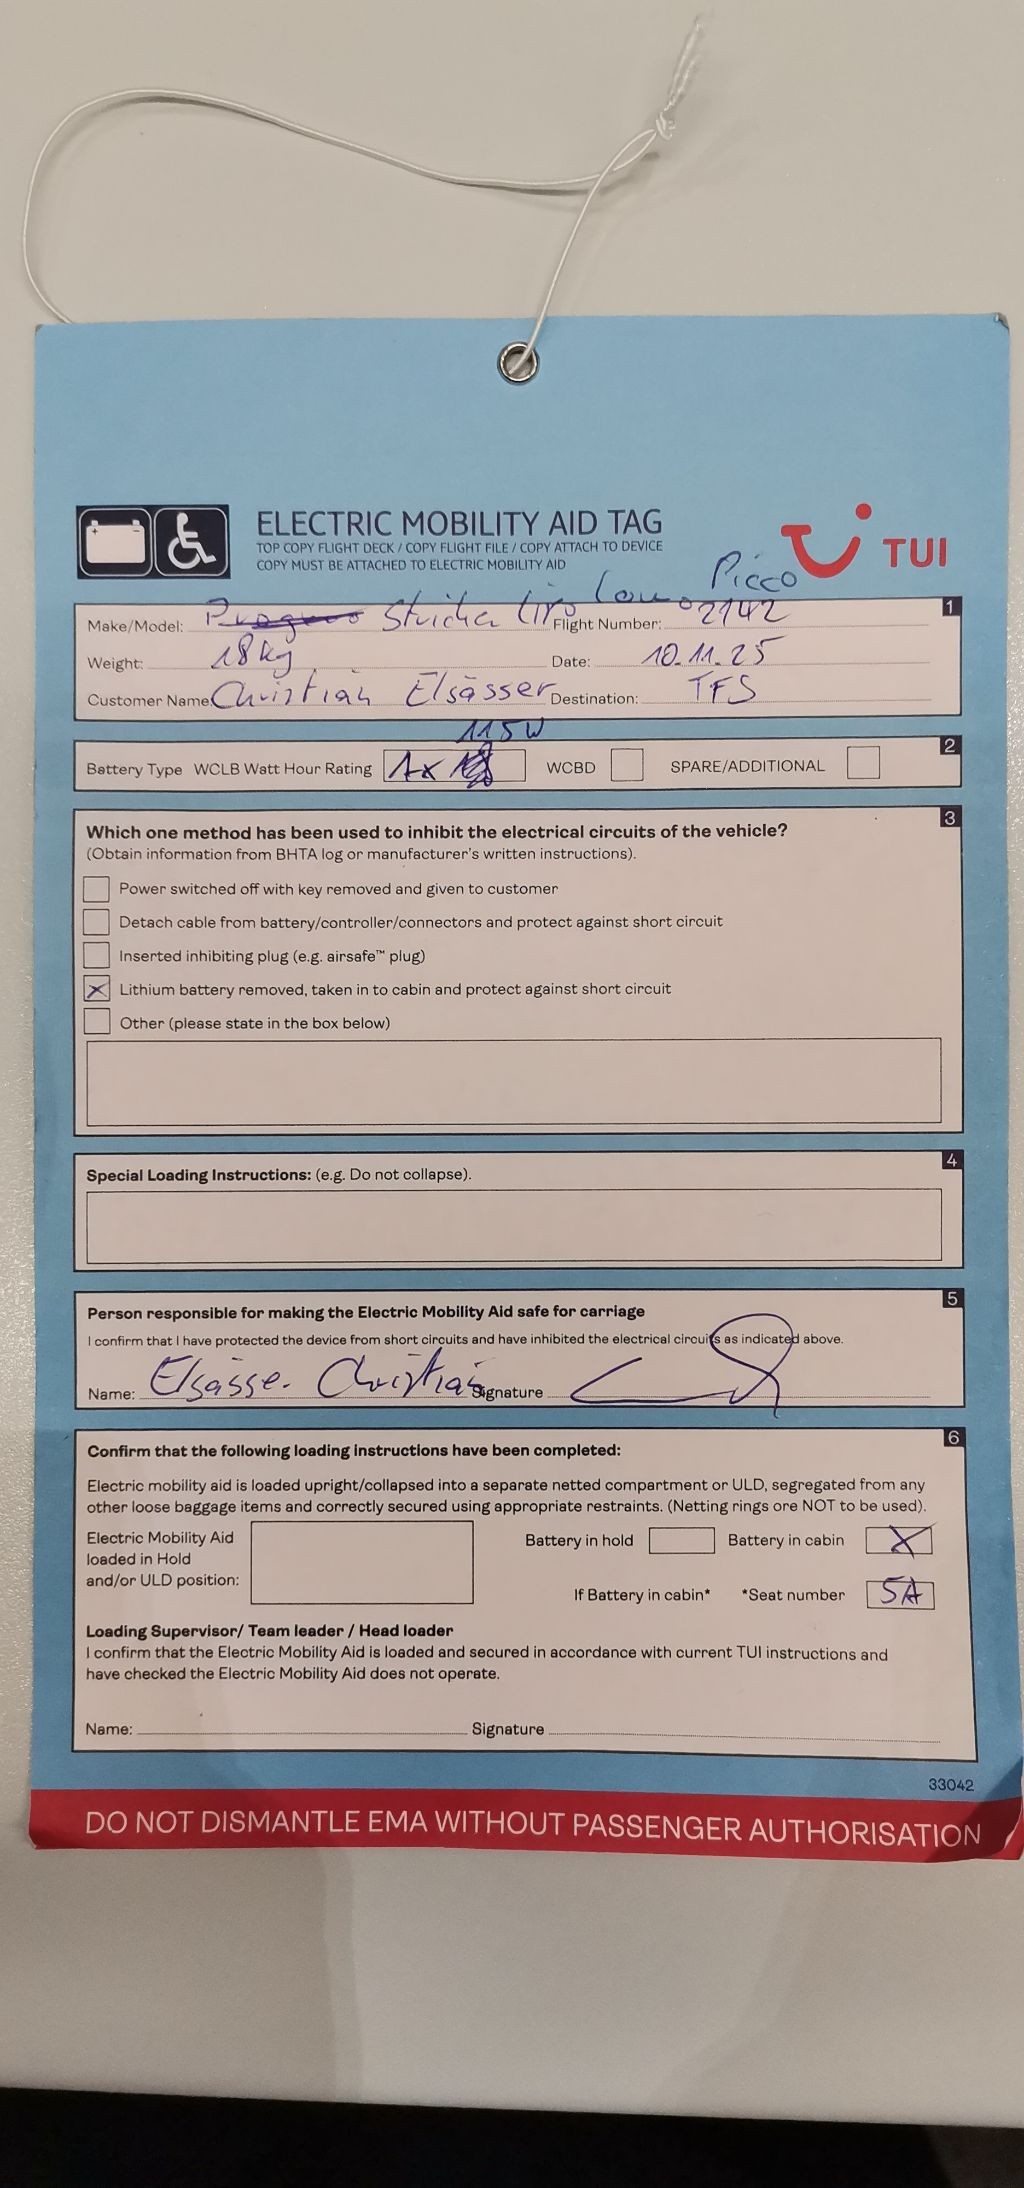 ELECTRIC MOBILITY AID TAG
TOP COPY FLIGHT DECK / COPY FLIGHT FILE / COPY ATTACH TO DEVICE
COPY MUST BE ATTACHED TO ELECTRIC MOBILITY AID
TUI
Picco
1
Make/Model: Stricker Flight Number: 2142
Weight: 18kg Date: 10.11.25
Customer Name: Christian Elsässer Destination: TFS
115W
2
Battery Type WCLB Watt Hour Rating 1x WCBD SPARE/ADDITIONAL
3
Which one method has been used to inhibit the electrical circuits of the vehicle?
(Obtain information from BHTA log or manufacturer's written instructions).
Power switched off with key removed and given to customer
Detach cable from battery/controller/connectors and protect against short circuit
Inserted inhibiting plug (e.g. airsafe™ plug)
X Lithium battery removed, taken in to cabin and protect against short circuit
Other (please state in the box below)
4
Special Loading Instructions: (e.g. Do not collapse).
5
Person responsible for making the Electric Mobility Aid safe for carriage
I confirm that I have protected the device from short circuits and have inhibited the electrical circuits as indicated above.
Name: Elsässer Christian Signature
6
Confirm that the following loading instructions have been completed:
Electric mobility aid is loaded upright/collapsed into a separate netted compartment or ULD, segregated from any
other loose baggage items and correctly secured using appropriate restraints. (Netting rings are NOT to be used).
Electric Mobility Aid
loaded in Hold
and/or ULD position:
Battery in hold Battery in cabin X
If Battery in cabin* *Seat number 5A
Loading Supervisor/ Team leader / Head loader
I confirm that the Electric Mobility Aid is loaded and secured in accordance with current TUI instructions and
have checked the Electric Mobility Aid does not operate.
Name: Signature
33042
DO NOT DISMANTLE EMA WITHOUT PASSENGER AUTHORISATION